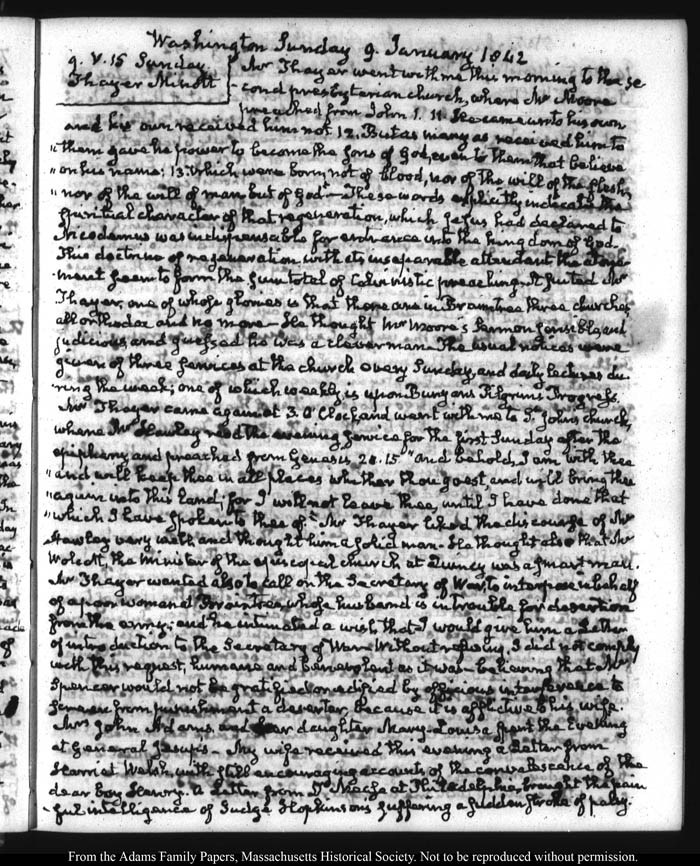 Washington Sunday 9. January 1842
9. V. 15 Sunday.
Thayer Minott
Mr Thayer went with me this morning to the se
cond presbyterian church, where Mr Moore
preached from John 1. 11. He came unto his own
and his own received him not 12. But as many as received him to
"them gave he power to become the Sons of God, even to them that believe
"on his name: 13. Which were born, not of blood, nor of the will of the flesh,
"nor of the will of man but of God" — These words explicitly indicate the
spiritual character of that regeneration, which Jesus had declared to
Nicodemus was indispensable for entrance into the kingdom of God.
This doctrine of regeneration with its inseparable attendant the atone-
ment seem to form the sum total of Calvinistic preaching. It suited Mr
Thayer, one of whose glories is that there are in Braintree three churches,
all orthodox and no more — He thought Mr Moore's Sermon sensible, and
judicious, and guessed he was a clever man. The usual notices were
given of three services at the church every Sunday, and daily lectures du-
ring the week; one of which weekly, is upon Bunyans Pilgrims Progress.
Mr Thayer came again at 3. O'Clock, and went with me to St. John's church,
where Mr Hawley read the evening service for the first Sunday after the
epiphany, and preached from Genesis 28. 15 "and behold, I am with thee
"and will keep thee in all places whither thou goest, and will bring thee
"again unto this land; for I will not leave thee, until I have done that
"which I have spoken to thee of." Mr Thayer liked the discourse of Mr
Hawley very well, and thought him a solid man. He thought also that Mr
Wolcott, the Minister of the episcopal church at Quincy was a smart man.
Mr Thayer wanted also to call on the Secretary of War, to interpose in behalf
of a poor woman of Braintree, whose husband is in trouble for desertion
from the army; and he intimated a wish that I would give him a Letter
of introduction to the Secretary of War. Without refusing, I did not comply
with this request, humane and benevolent as it was — believing that Mr
Spencer would not be gratified or edified by officious interference to
screen from punishment a deserter, because it is afflictive to his wife.
Mrs John Adams, and her daughter Mary-Louisa spent the Evening
at General Jesup's — My wife received this evening a Letter from
Harriet Welsh, with still encouraging accounts of the convalescence of the
dear boy Henry. A Letter from at Philadelphia, brought the pain
-ful intelligence of Judge Hopkinsons suffering a sudden stroke of palsy.
From the Adams Family Papers, Massachusetts Historical Society. Not to be reproduced without permission.